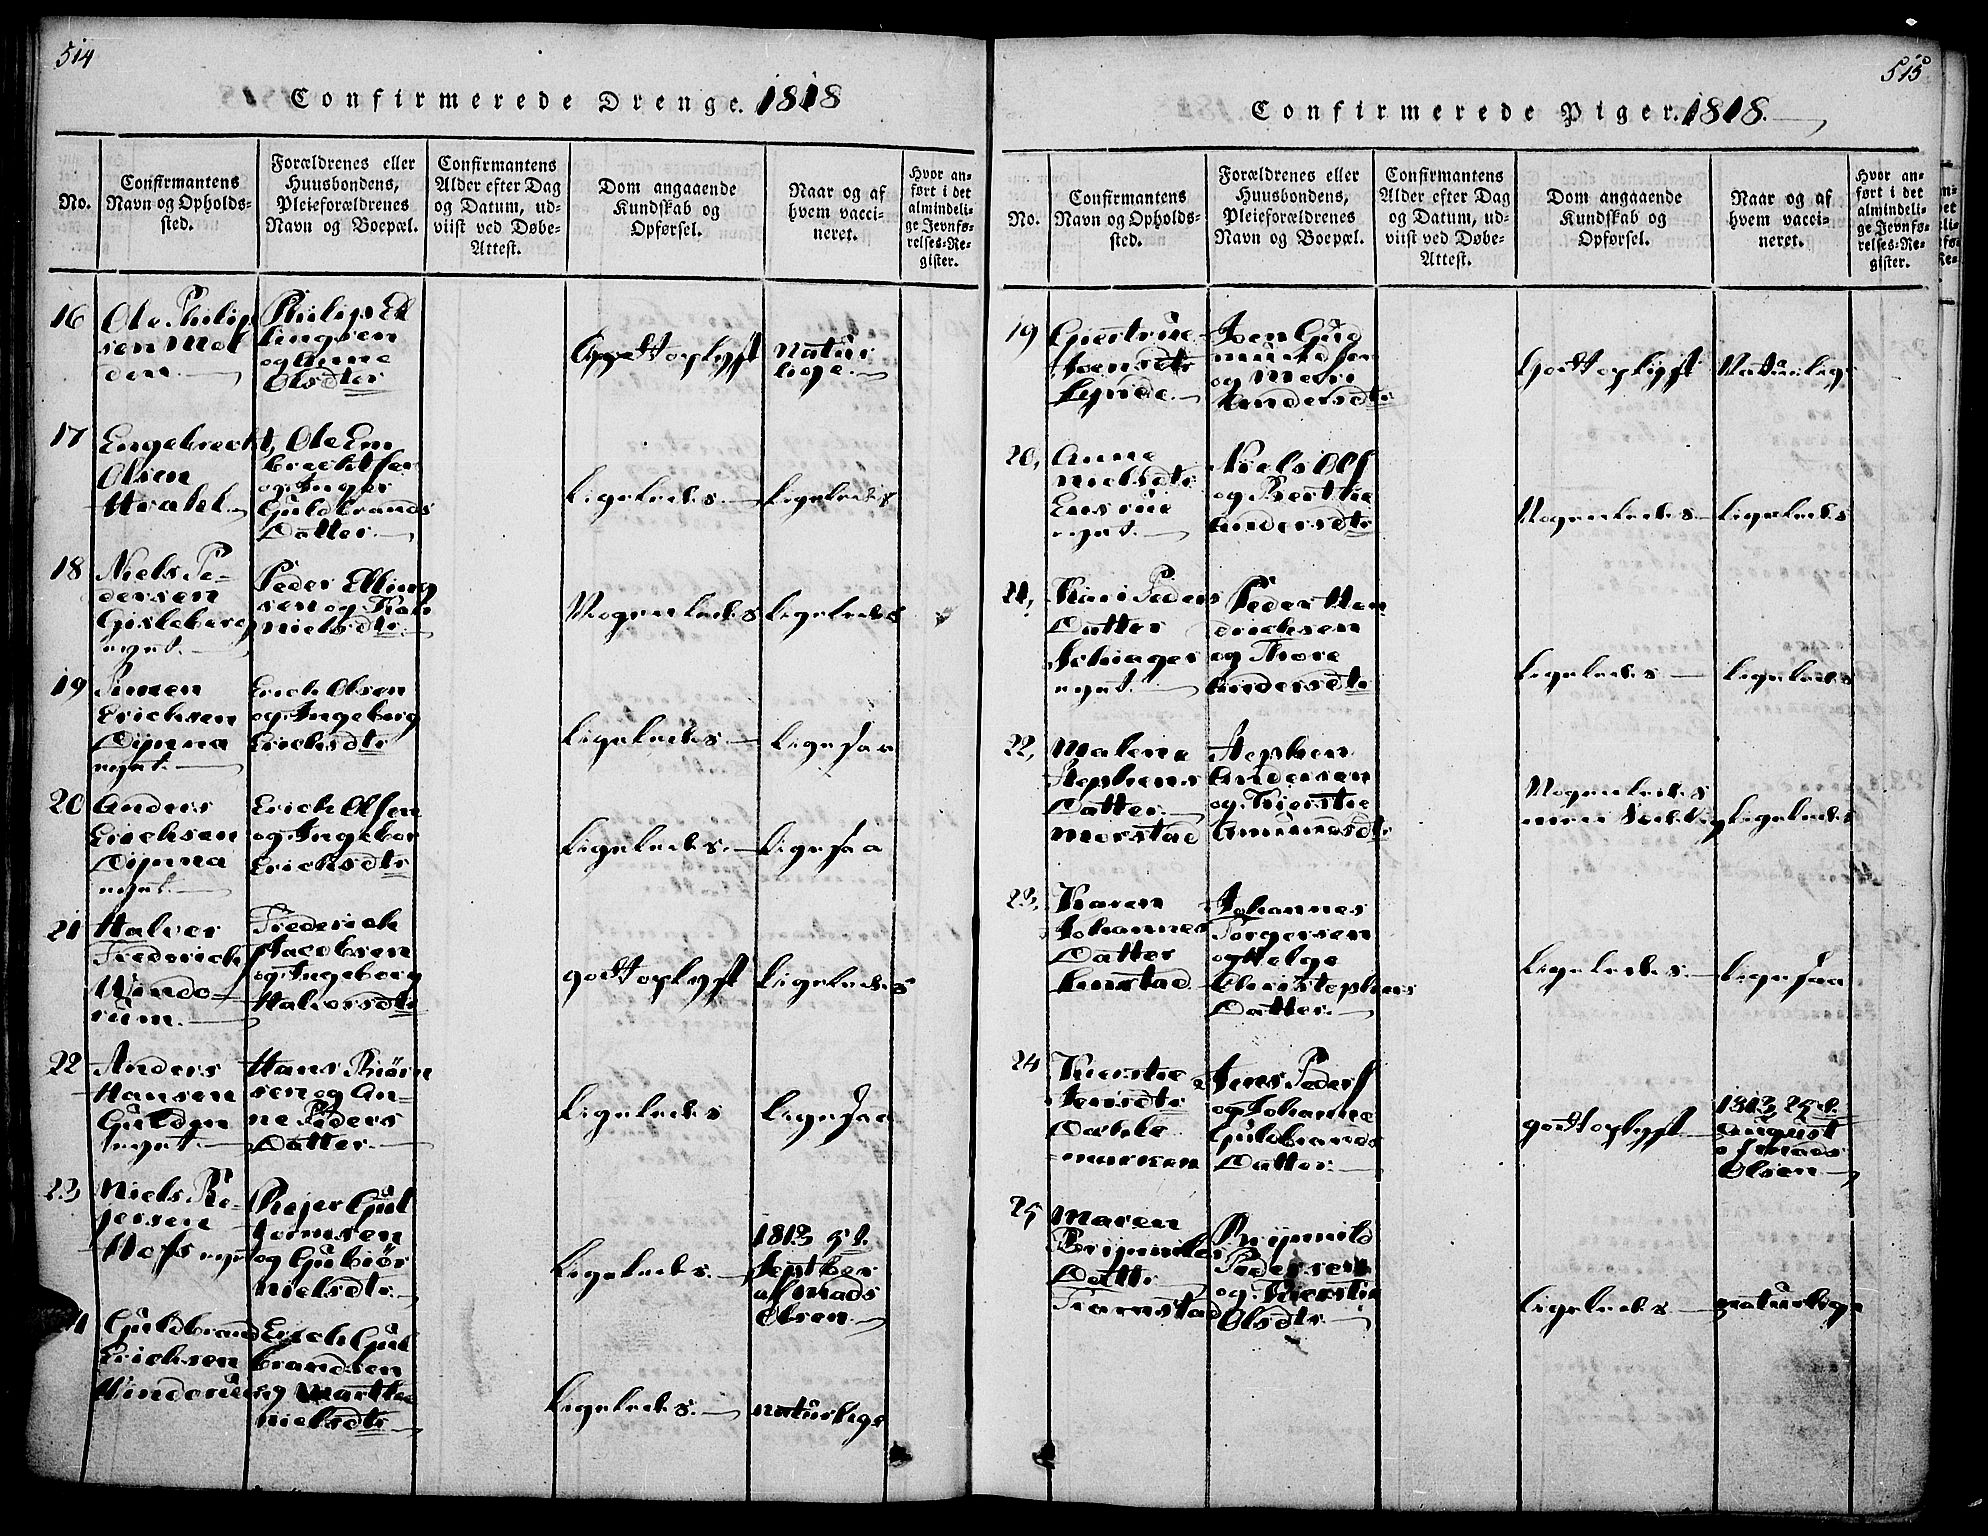 514
Confirmerede Drenge. 1818
No.
Confirmantens Navn og Opholds-sted.
Forældrenes eller Huusbondens, Pleieforældrenes Navn og Boepæl.
Confirmantens Alder efter Dag og Datum, ud-viist ved Døbe-Attest.
Dom angaaende Kundskab og Opførsel.
Naar og af hvem vacci-neret.
Hvor an-ført i det almindeli-ge Jevnfø-relses-Re-gister.
16
Ole Philip
sen Mel
den.
Philip El
lingsen
og Anne
Olsdtr
Godt oplyst
Natur
lige.
17
Engebrecht
Olsen
Ole Em
brechtsen
og Inger
Guldbrands
Datter.
Ligeledes.
Ligeledes
18
Niels Pe-
dersen
Gisleberg
eyet.
Peder Elling
sen og Kari
Nielsdtr.
Nogenledes
Ligeledes
19
Simen
Erichsen
Dynna
eyet.
Erich Olsen
og Ingeborg
Erichsdtr
Ligeledes.
Ligesaa
20
Anders
Erichsen
Dynna
eyet.
Erich Olsen
og Ingebor
Erichsdtr
Ligeledes.
Ligesaa
21
Halvor
Frederich
Windo-
rum.
Frederich
Jacobsen
og Ingeborg
Halvorsdtr
godt oplyst
Ligeledes
22
Anders
Hansen
Gulden
eyet.
Hans Biørn
sen og An-
ne Peders
Datter.
Ligeledes
Ligesaa
23
Niels Re-
jersen
Hofs eyet
Rejer Gut
tormsen
og Gubiør
Nielsdtr.
Ligeledes.
1813 5 t.
Septber
af Mads
Olsen.
Guldbrand
Erichsen
Windorum
Erich Gul
brandsen
og Marthe
Nielsdtr.
Ligeledes.
naturlige
515
Confirmerede Piger. 1818.
No.
Confirmantens Navn og Opholds-sted.
Forældrenes eller Huusbondens, Pleieforældrenes Navn og Boepæl.
Confirmantens Alder efter Dag og Datum, ud-viist ved Døbe-Attest.
Dom angaaende Kundskab og Opførsel.
Naar og af hvem vacci-neret.
Hvor an-ført i det almindeli-ge Jevnfø-relses-Re-gister.
19
Giertrue
Joensdtr
Lynde.
Joen Gud
mundsen
og Mari
Andersdtr
Godt oplyst
Naturlige
20,
Anne
Nielsdtr
eyet.
Niels Ols
og Berthe
Andersdtr
Nogenledes
Ligeledes
21,
Kari Peders
Datter
Schiager
eyet.
Peder Hen
drichsen
og Thore
Andersdtr
Ligeledes
Ligeledes
22,
Malene
Stephens
Datter.
Morstad
Stephen
Andersen
og Kierstie
Amundsdtr
Nogenledes
Ligeledes
23,
Karen
Johannes
Datter
Johannes
Torgersen
og Helge
Christephers
Datter.
Ligeledes.
Ligesaa
24
Kierstie
Jensdtr
Dæhle
marken
Jens Peders
og Johanne
Gulbrands
Datter.
godt oplyst
1813, 25 t.
August
af Mads
Olsen
25
Maren
Brynnils
Dattr
Framstad
Brynnild
Pedersen
og Kierstie
Olsdtr.
Ligeledes
naturlige